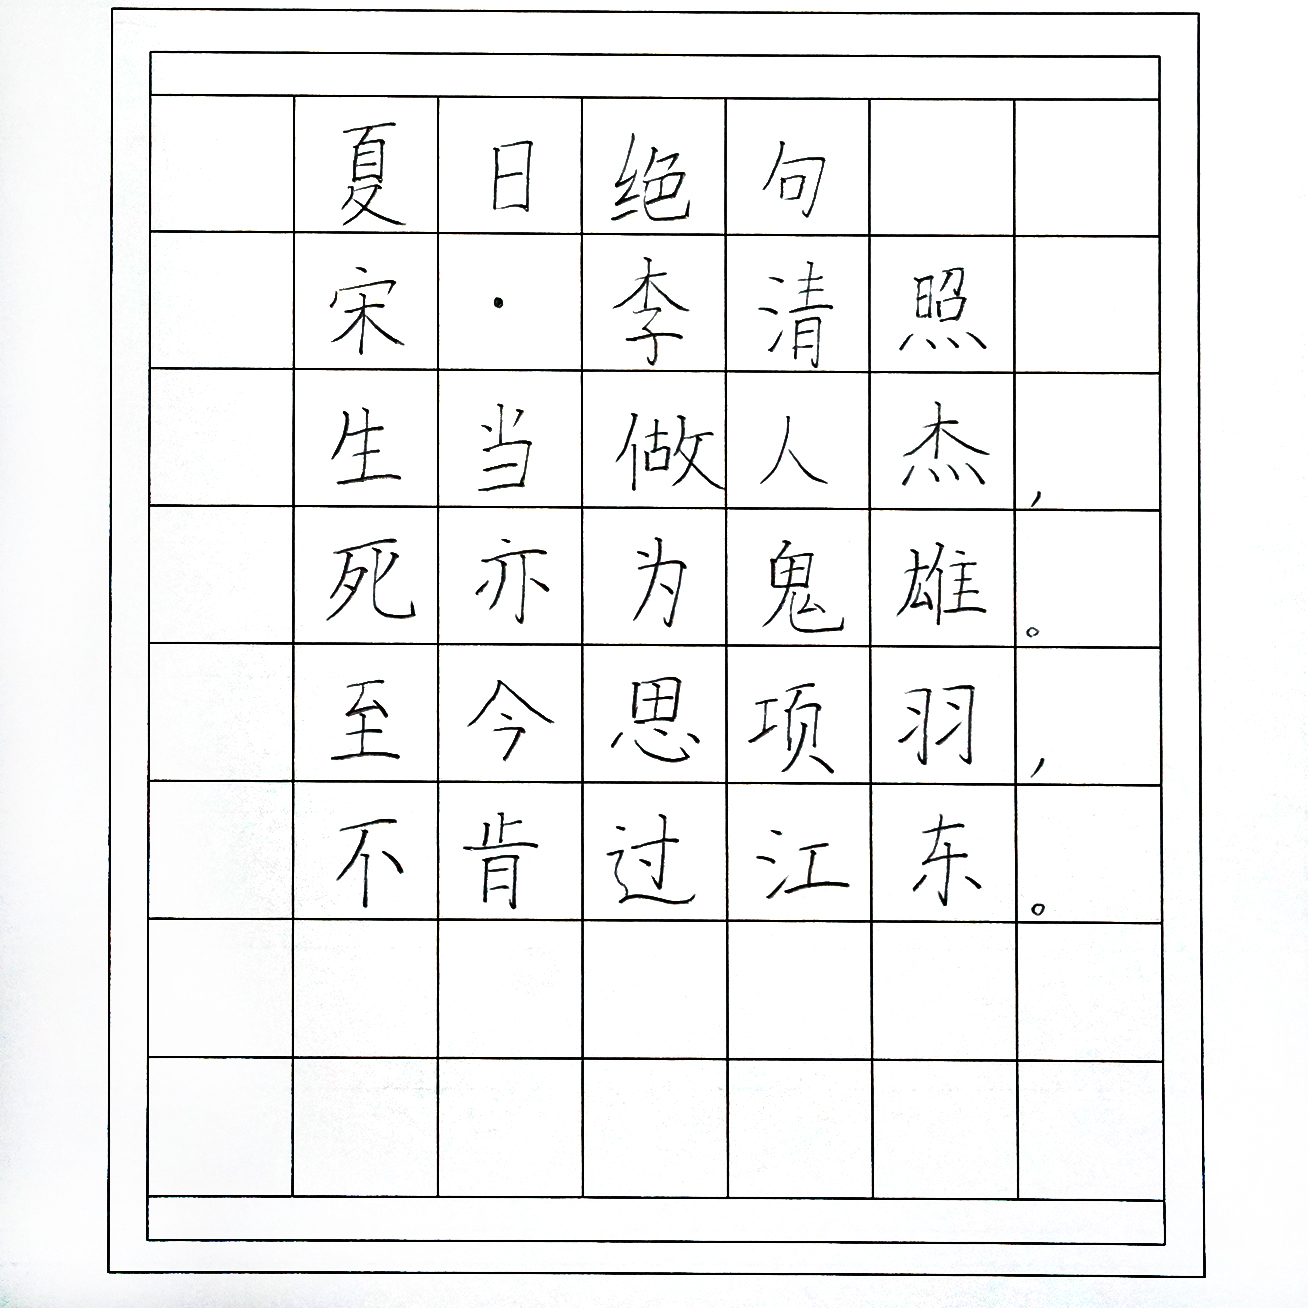 夏日绝句
宋·李清照
生当做人杰，
死亦为鬼雄。
至今思项羽，
不肯过江东。